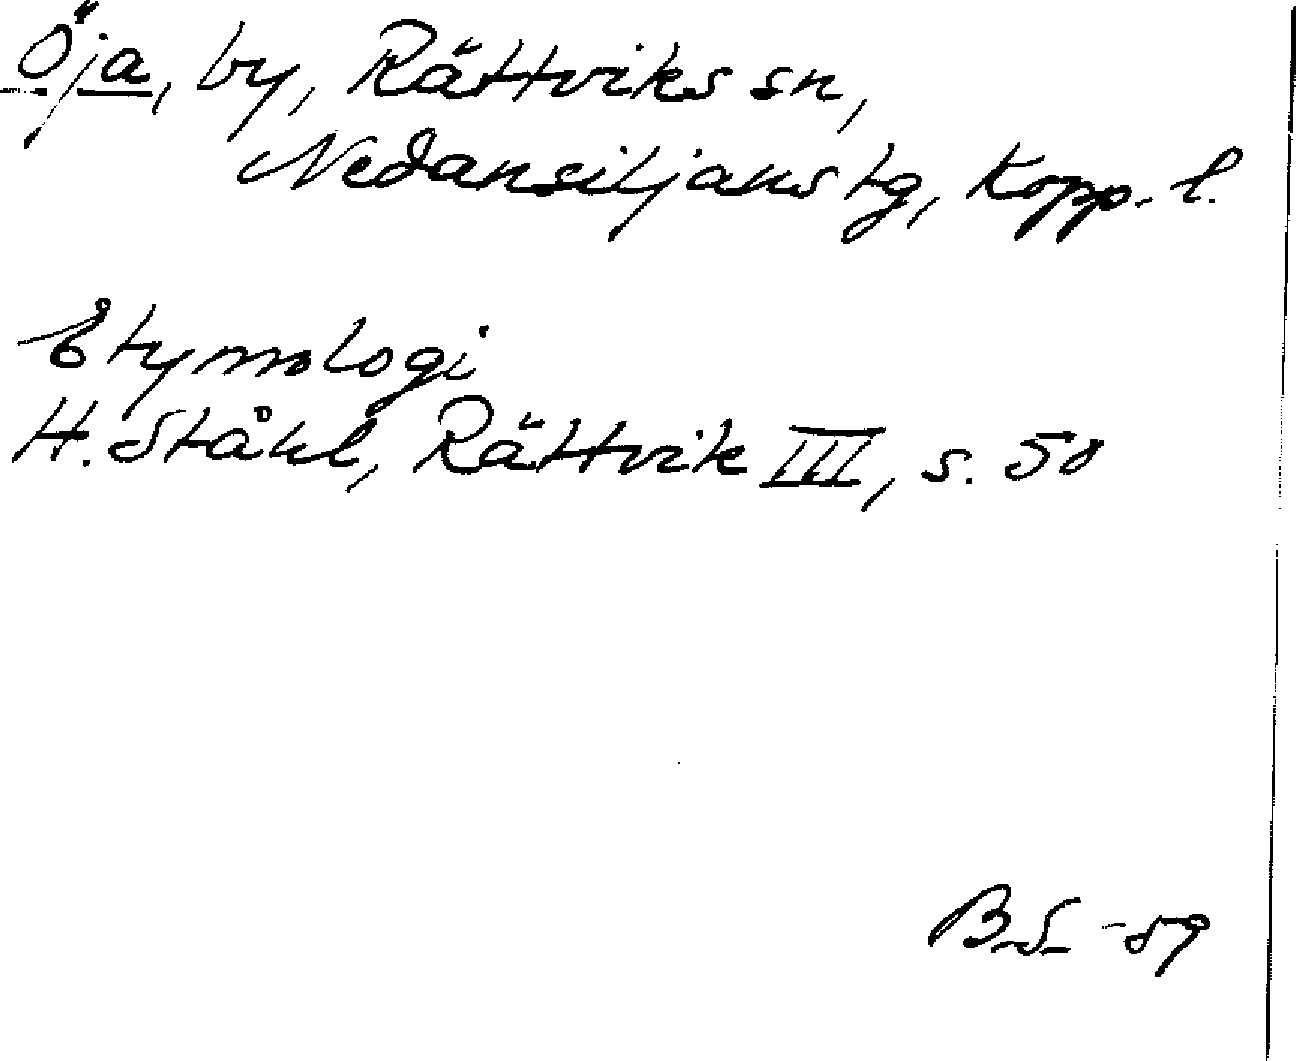 Öja, by, Rättviks sn,
Nedansiljans tg, Kopp. l.
Etymologi
H. Ståhl, Rättvik III, s. 58
B.S. -89